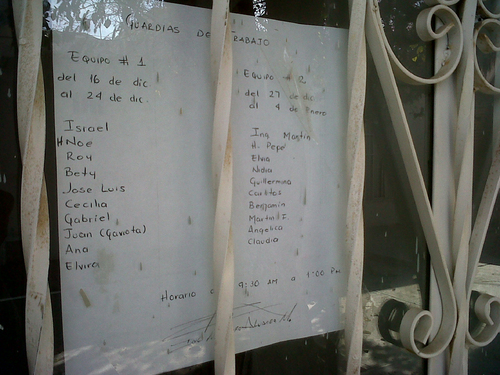 GUARDIAS DE TRABAJO
EQUIPO # 1
del 16 de dic
al 24 de dic.
Israel
H Noe
Roy
Bety
Jose Luis
Cecilia
Gabriel
Juan (Gaviota)
Ana
Elvira
EQUIPO # 2
del 27 de dic
al 4 de Enero
Ing Martin
H. Pepe
Elvia
Nidia
Guillermina
Carlitos
Benjamin
Martin I.
Angelica
Claudia
Horario 9:30 AM a 1:00 PM